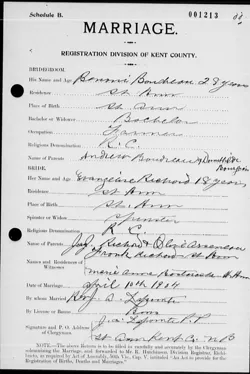 Schedule B.
001213
MARRIAGE.
REGISTRATION DIVISION OF KENT COUNTY.
BRIDEGROOM.
His Name and Age Bonomi Boudreau 28 years
Residence St. Ann
Place of Birth St. Ann
Bachelor or Widower Bachelor
Occupation Farmer
Religious Denomination R. C.
Name of Parents Andrew Boudreau &
BRIDE.
Her Name and Age Evangeline Richard 18 years
Residence St Ann
Place of Birth St. Ann
Spinster or Widow Spinster
Religious Denomination R. C.
Name of Parents Richard &
Names and Residences of Witnesses Frank Richard St Ann
Marie Anne St Ann
Date April 10th 1904
By whom Married Rev J. A. Lapointe
By License or Banns Banns
Signature and P. O. Address of Clergyman J. A. Lapointe P.P.
St Ann Kent Co. N.B
NOTE.—The above Return is to be filled in monthly or oftener by the Clergyman
solemnizing the Marriage, and forwarded to Mr. R. Hutchinson, Division Registrar, Richi-
bucto, as required by Act of Assembly, 50th Vic., Cap. V. intituled "An Act to provide for the
Registration of Births, Deaths and Marriages."